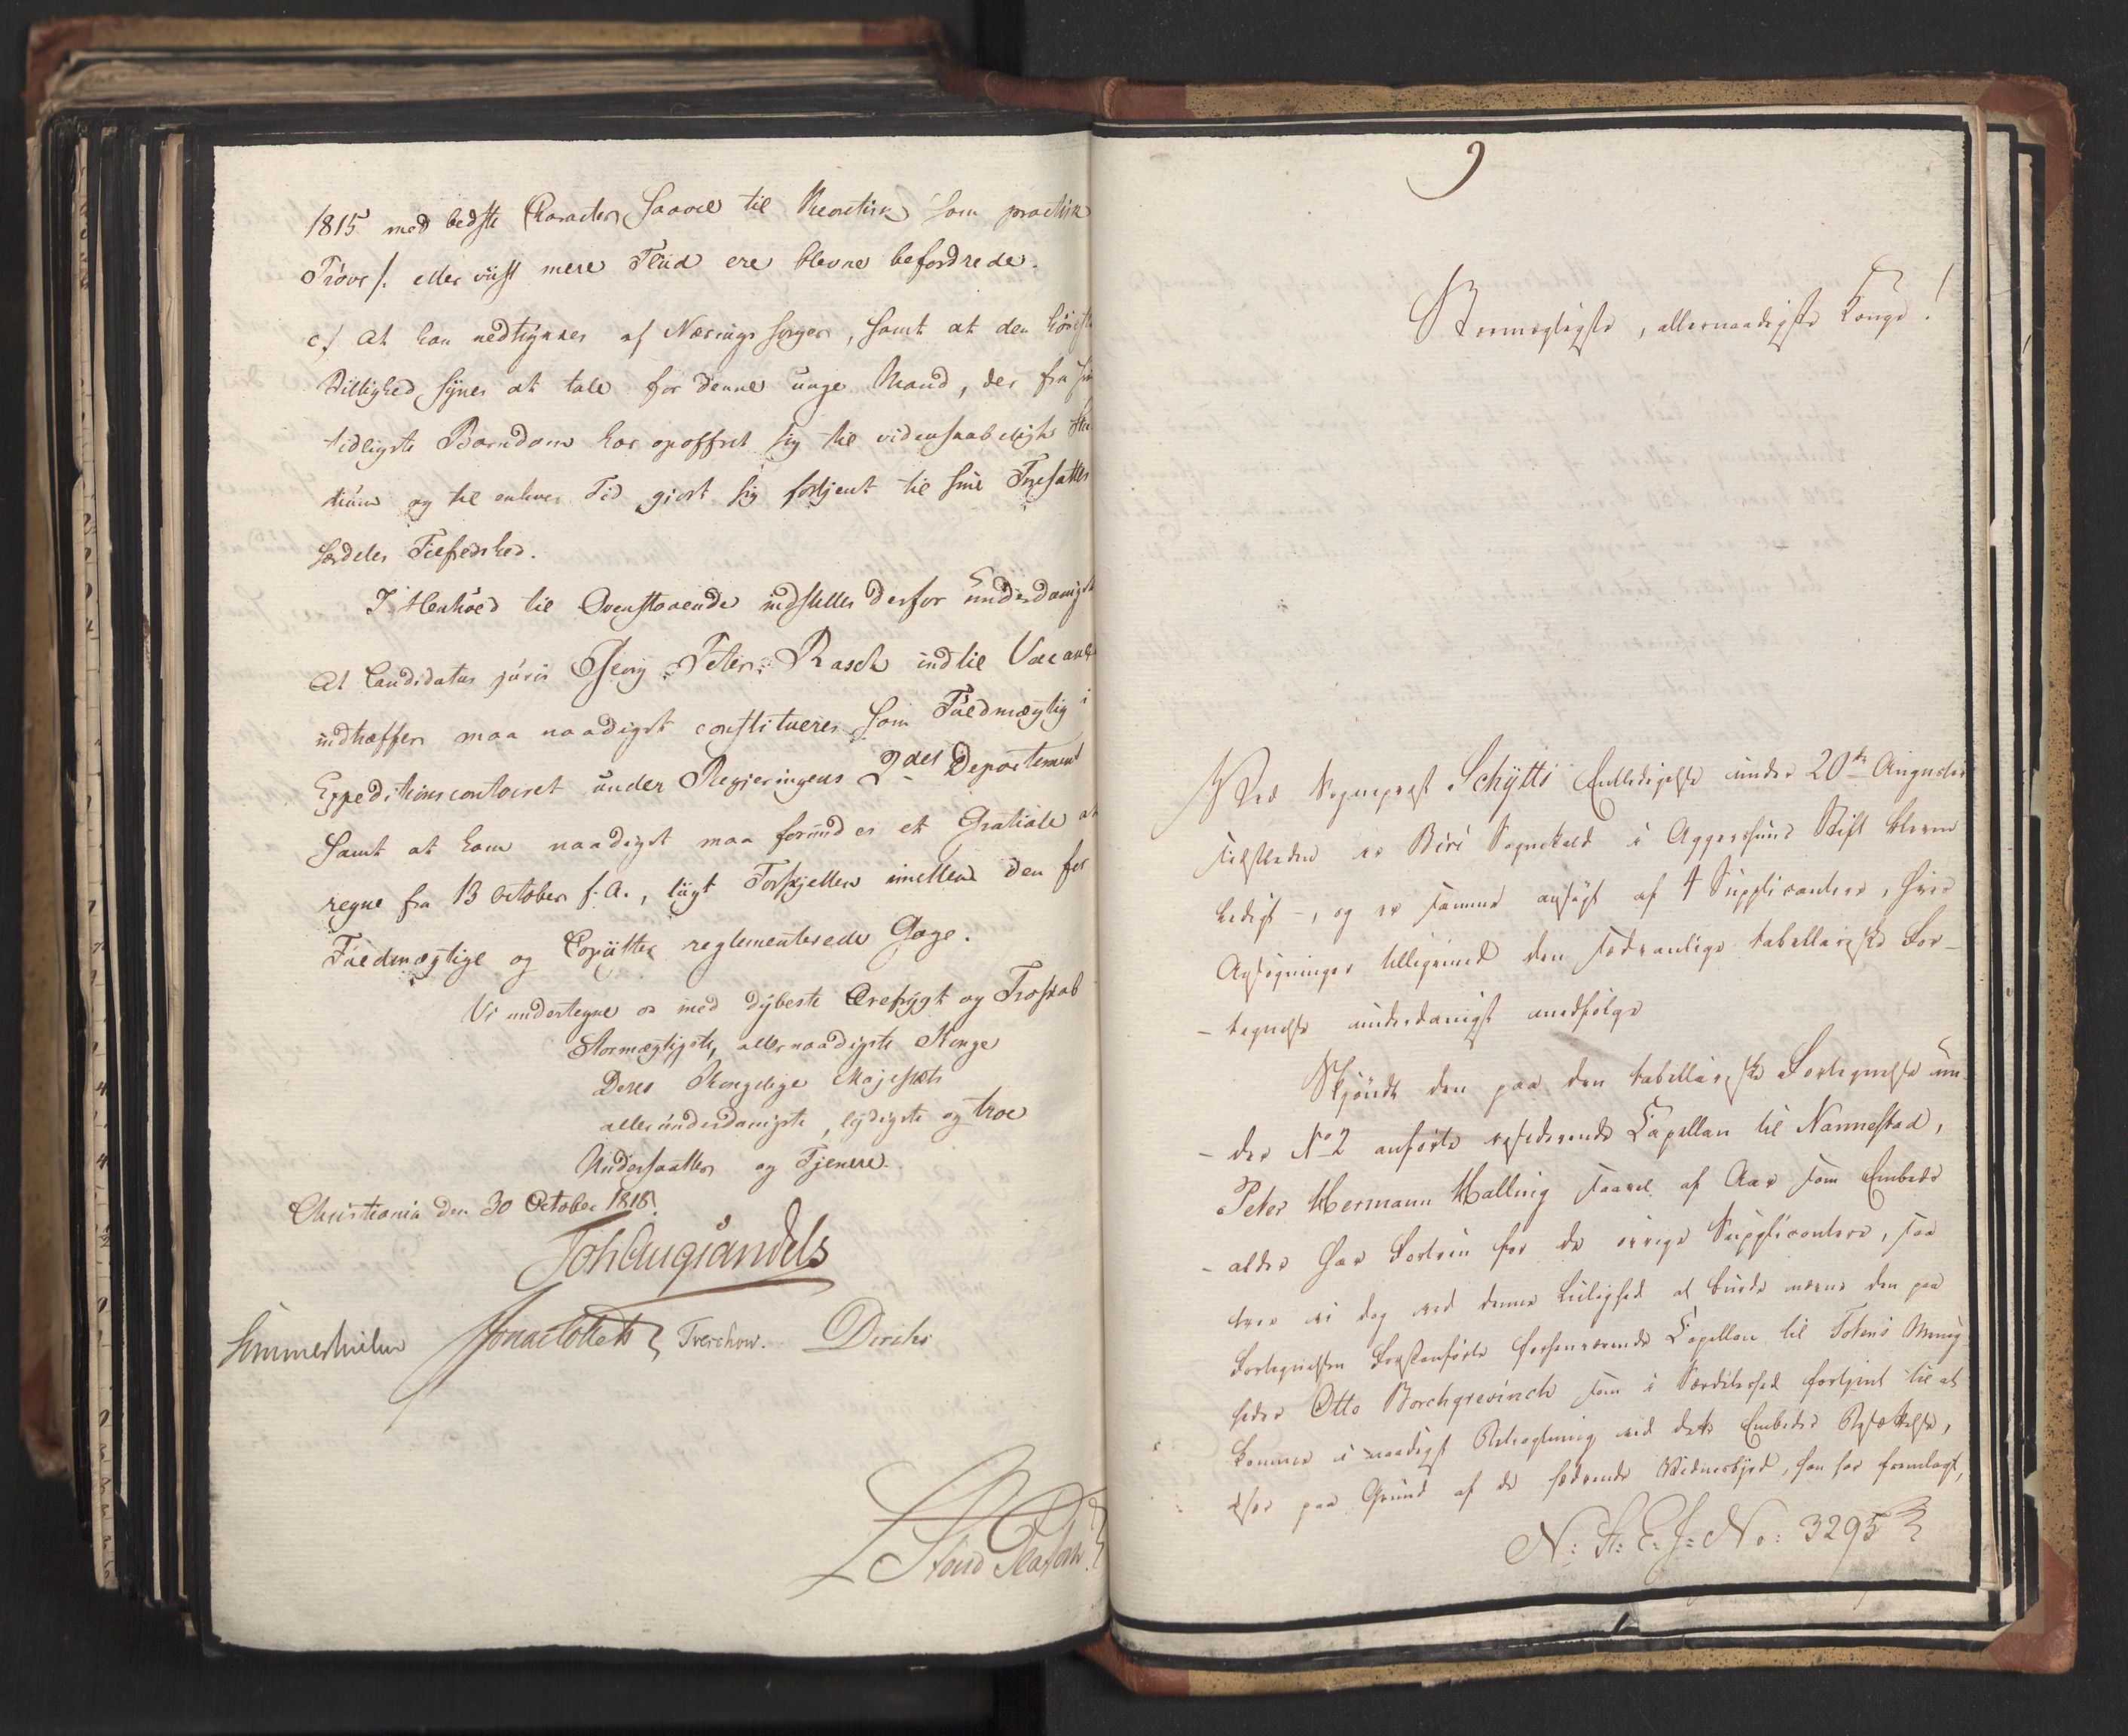 1815 med bedste Characteer saavel til theoretisk som practisk
Prøve/: eller viist mere Fliid ere blevne befordrede.
c./ at han nedtrykkes af Nærings sorger, samt at den høieste
Billighed synes at tale for denne unge Mand, der fra sin
tidligste Barndom har opoffret sig til videnskabeligt Stu-
dium og til enhver Tid giort sig fortjent til sine Foresattes
særdeles Tilfredshed.
I Henhold til Ovenstaaende indstilles derfor underdanigst
At Candidatus juris Georg Peter Rasch indtil Vacance
indtræffer maa naadigst constitueres som Fuldmægtig i
Expeditionscontoiret under Regjeringens 2det Departement
samt at ham naadigst maa forundes et Gratiale at
regne fra 13 October f. A., liigt Forskjellen imellem den for
Fuldmægtige og Copiister reglementerede Gage.
Vi undertegne os med dybeste Ærefrygt og Troskab
Stormægtigste, allernaadigste Konge
Deres Kongelige Majestæts
allerunderdanigste, lydigste og troe
Undersaatter og Tjenere.
Christiania den 30 October 1818.
Joh Aug Sandels
Sommerhielm Jonas Collett Treschow. Diriks
9
Stormægtigste, allernaadigste Konge!
Ved Sogneprest Schytts Entledigelse under 20de Augusti
sidstleden er Biri Sognekald i Aggershuus Stift bleven
ledigt -, og er samme ansøgt af 4 Supplicantere, hvis
Ansøgninger tilligemed den sædvanlige tabellariske For-
- tegnelse underdanigst medfølge
Skjøndt den paa den tabellariske Fortegnelse un-
- der No 2 anførte residerende Capellan til Nannestad,
Peter Hermann Halling saavel af Aar som Embeds
- alder har Fortrin for de øvrige Supplicantere, saa
troe vi dog ved denne Leilighed at burde nævne den paa
Fortegnelsen førstanførte forhenværende Capellan til Totens Menig-
heder Otto Borchgrevinch som i Særdeleshed fortjent til at
komme i naadigst Betragtning ved dette Embedes Besættelse,
dhr paa Grund af de hædrende Vidnesbyrd, han har fremlagt,
N: St: E. J: No: 3295